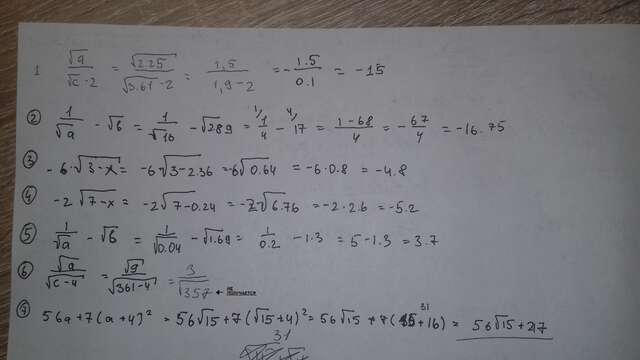 1 √a/√c-2 = √2.25/√3.61-2 = 1,5/1,9-2 = -1.5/0.1 = -15
② 1/√a - √b = 1/√16 - √289 = 1/4 - 17 = 1-68/4 = -67/4 = -16.75
③ -6·√3-x = -6√3-2.36 = -6√0.64 = -6·0.8 = -4.8
④ -2√7-x = -2√7-0.24 = -2√6.76 = -2·2.6 = -5.2
⑤ 1/√a - √b = 1/√0.04 - √1.69 = 1/0.2 - 1.3 = 5-1.3 = 3.7
⑥ √a/√c-4 = √9/√361-4 = 3/√357 ← не получается
⑦ 56a+7(a+4)² = 56√15+7(√15+4)² = 56√15+7(15+16) = 56√15+217
31
31